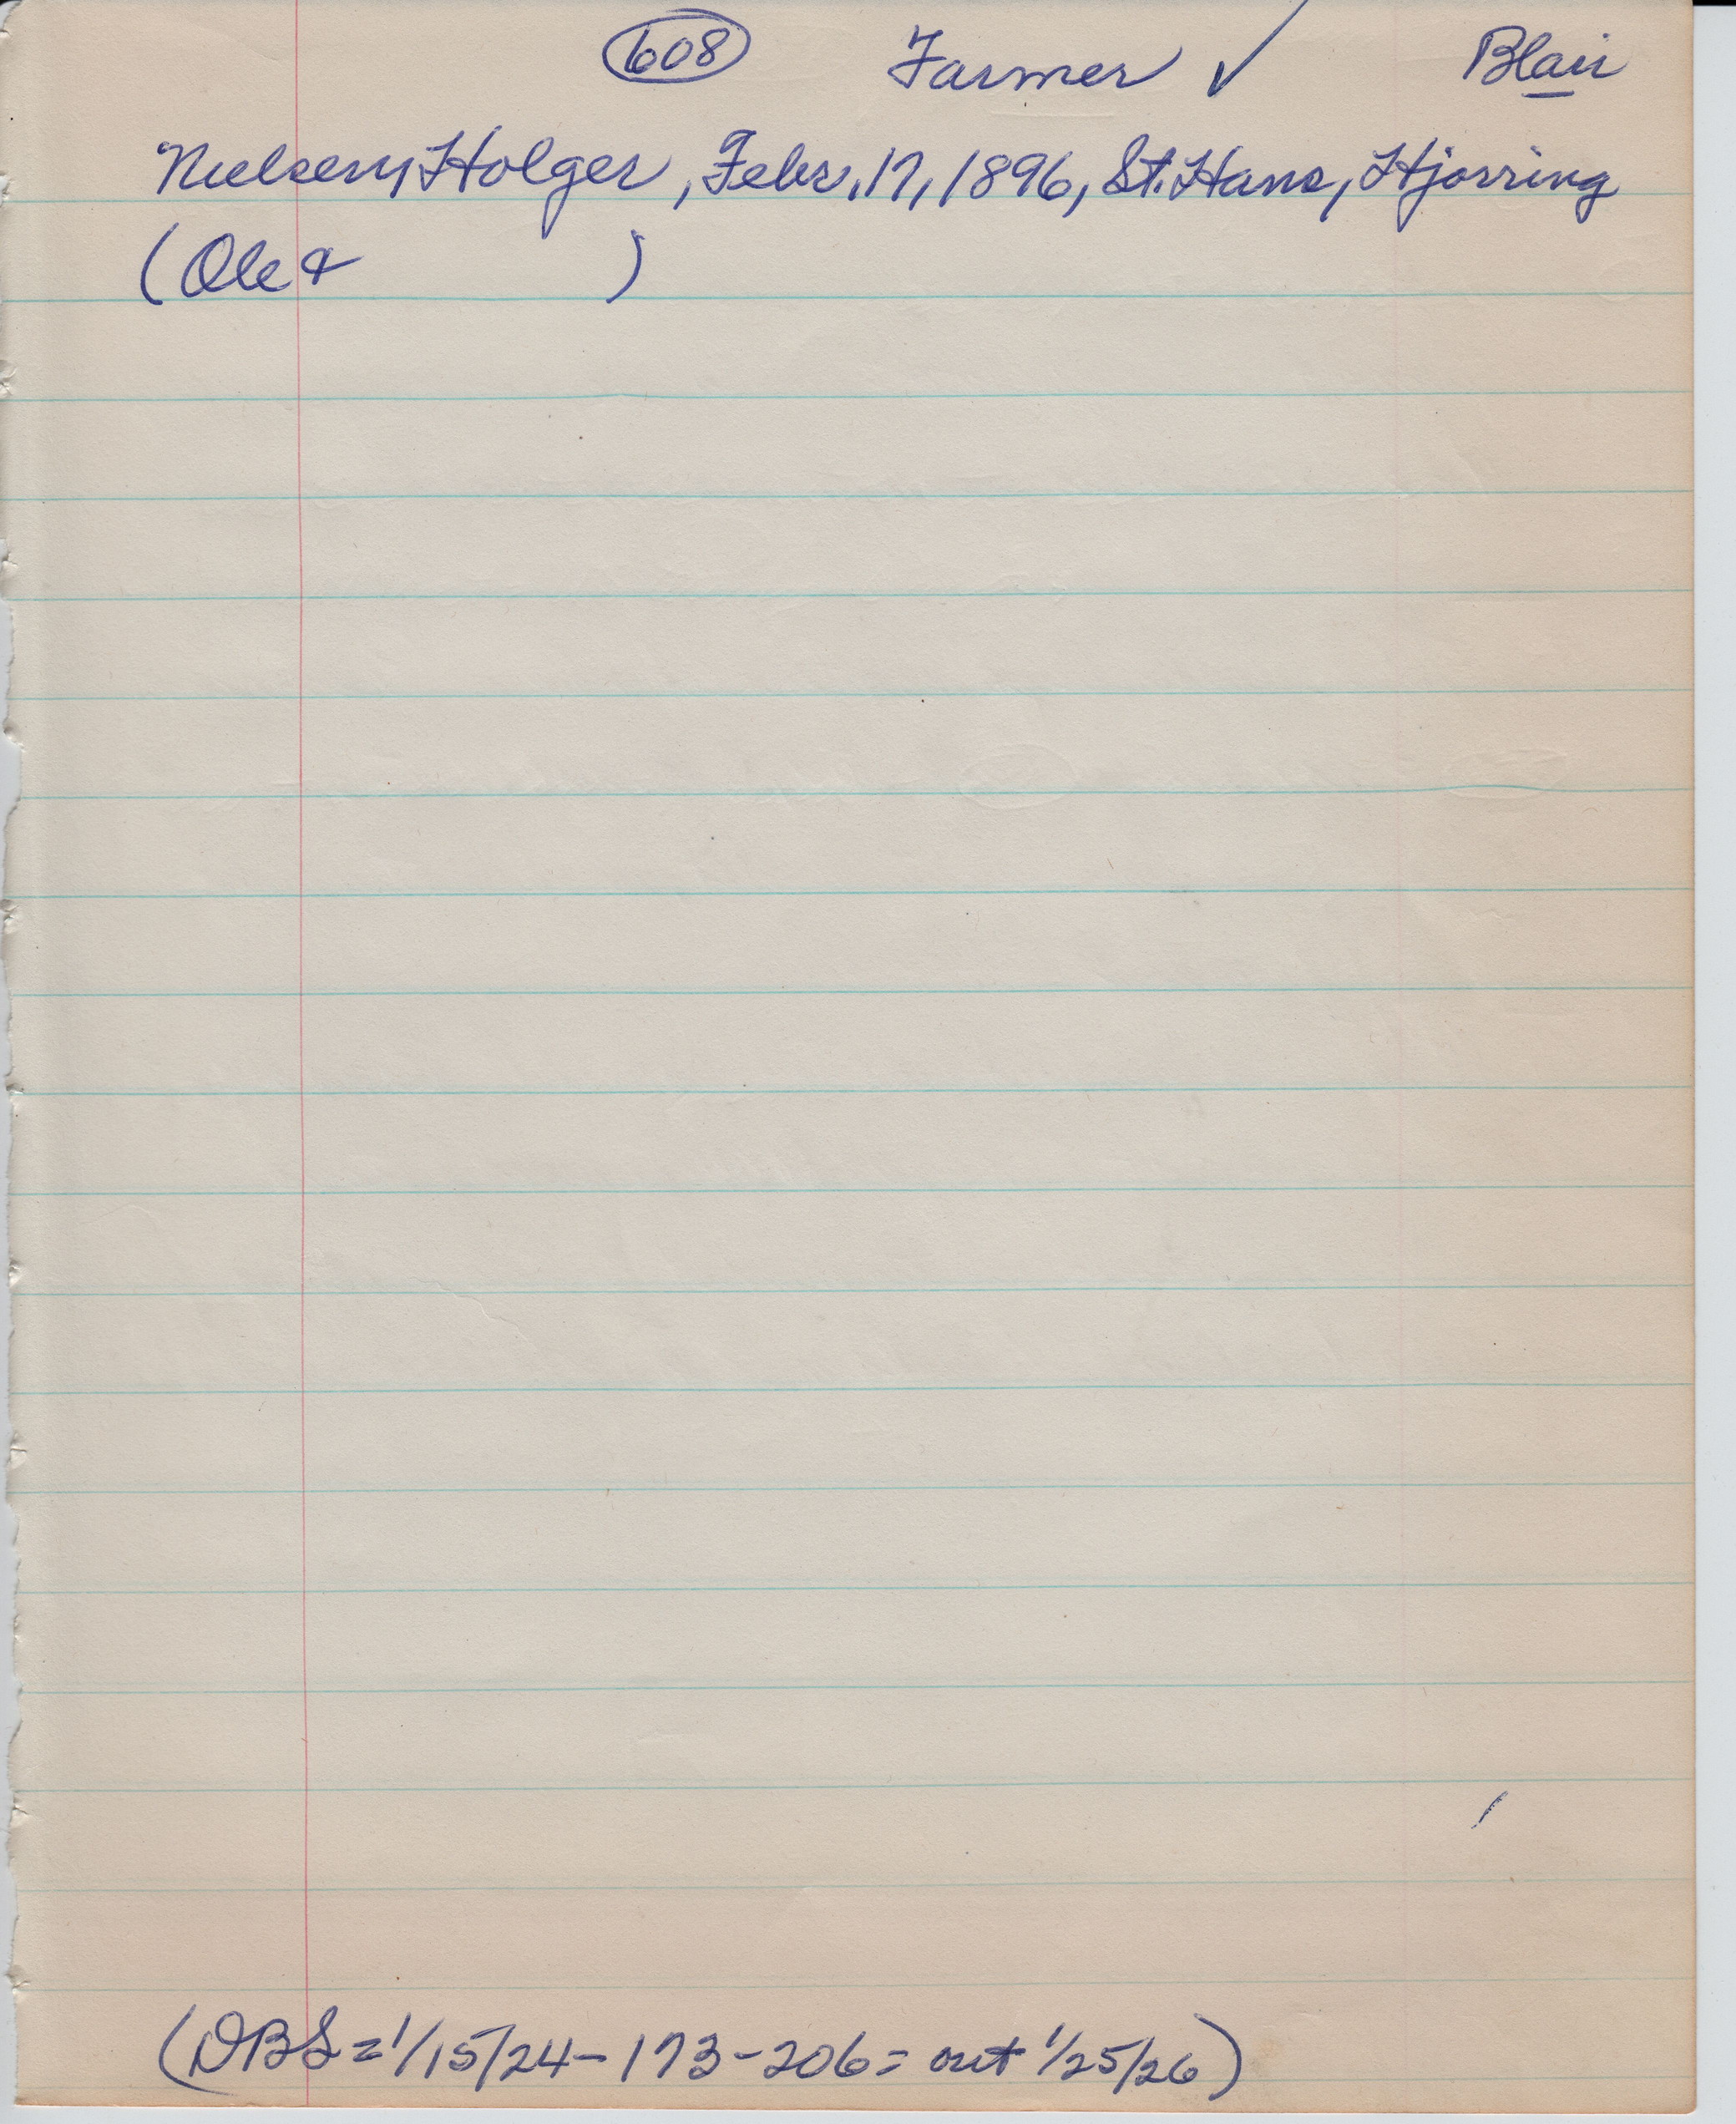 608 Farmer ✓ Blair
Nielsen, Holger, Febr. 17, 1896, St. Hans, Hjorring
(Ole & )
(DBS = 1/15/24 - 173 - 206 = out 1/25/26)